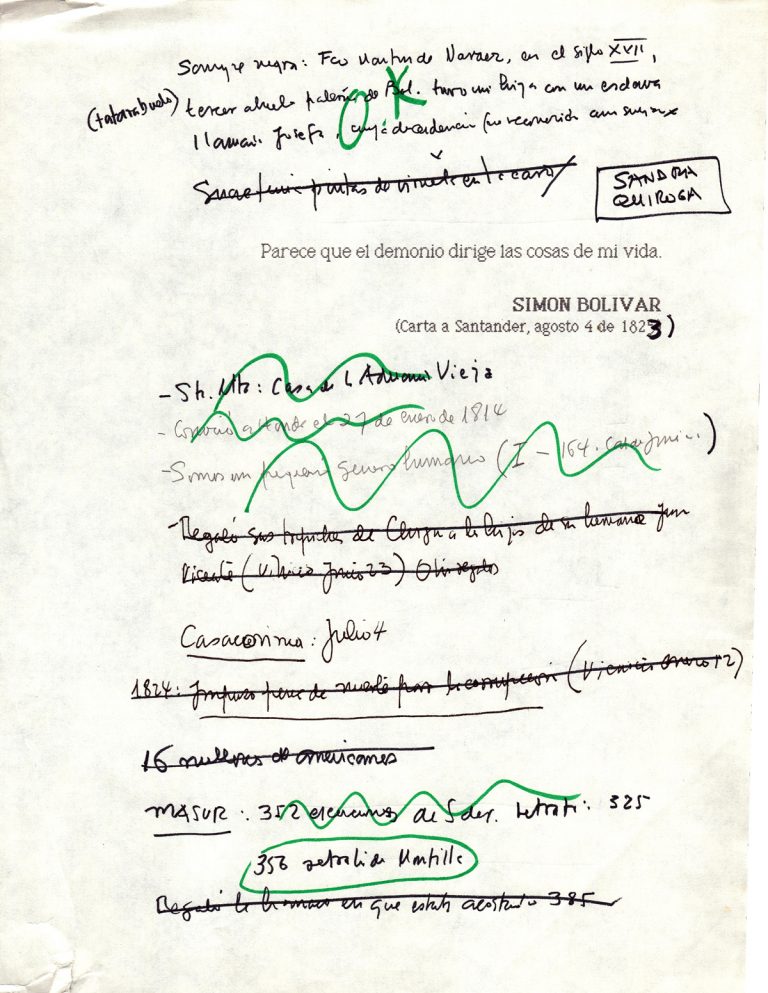 Sangre negra: Fco Martín de Narváez, en el siglo XVII,
(tatarabuelo) tercer abuelo paterno de Bol. tuvo una hija con una esclava
OK
llamada Josefa, cuya descendencia fue reconocida
Sucre tenía pintas de viruela en la cara
SANDRA
QUIROGA
Parece que el demonio dirige las cosas de mi vida.
SIMON BOLIVAR
(Carta a Santander, agosto 4 de 1823)
- Sta. Mta: Casa de la Aduana Vieja
- Conoció a Maude el 27 de enero de 1814
- Somos un pequeño género humano (I - 164. Carta Jamaica.)
- Regaló sus de a la hijos de su hermano Juan
Vicente (Vinicio Junio 23)
Casacoima: Julio 4
1824: Impuso pena de muerte para la corrupción (Vinicio Enero 12)
16 millones de americanos
MASUR: 352 de Sder. retrato: 325
356 retrato de Montilla
Regaló la hamaca en que estaba acostado 385